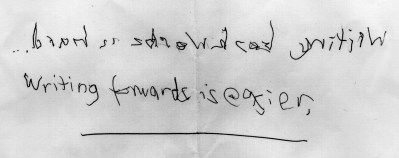 Writing backwards is hard...
Writing forwards is easier.